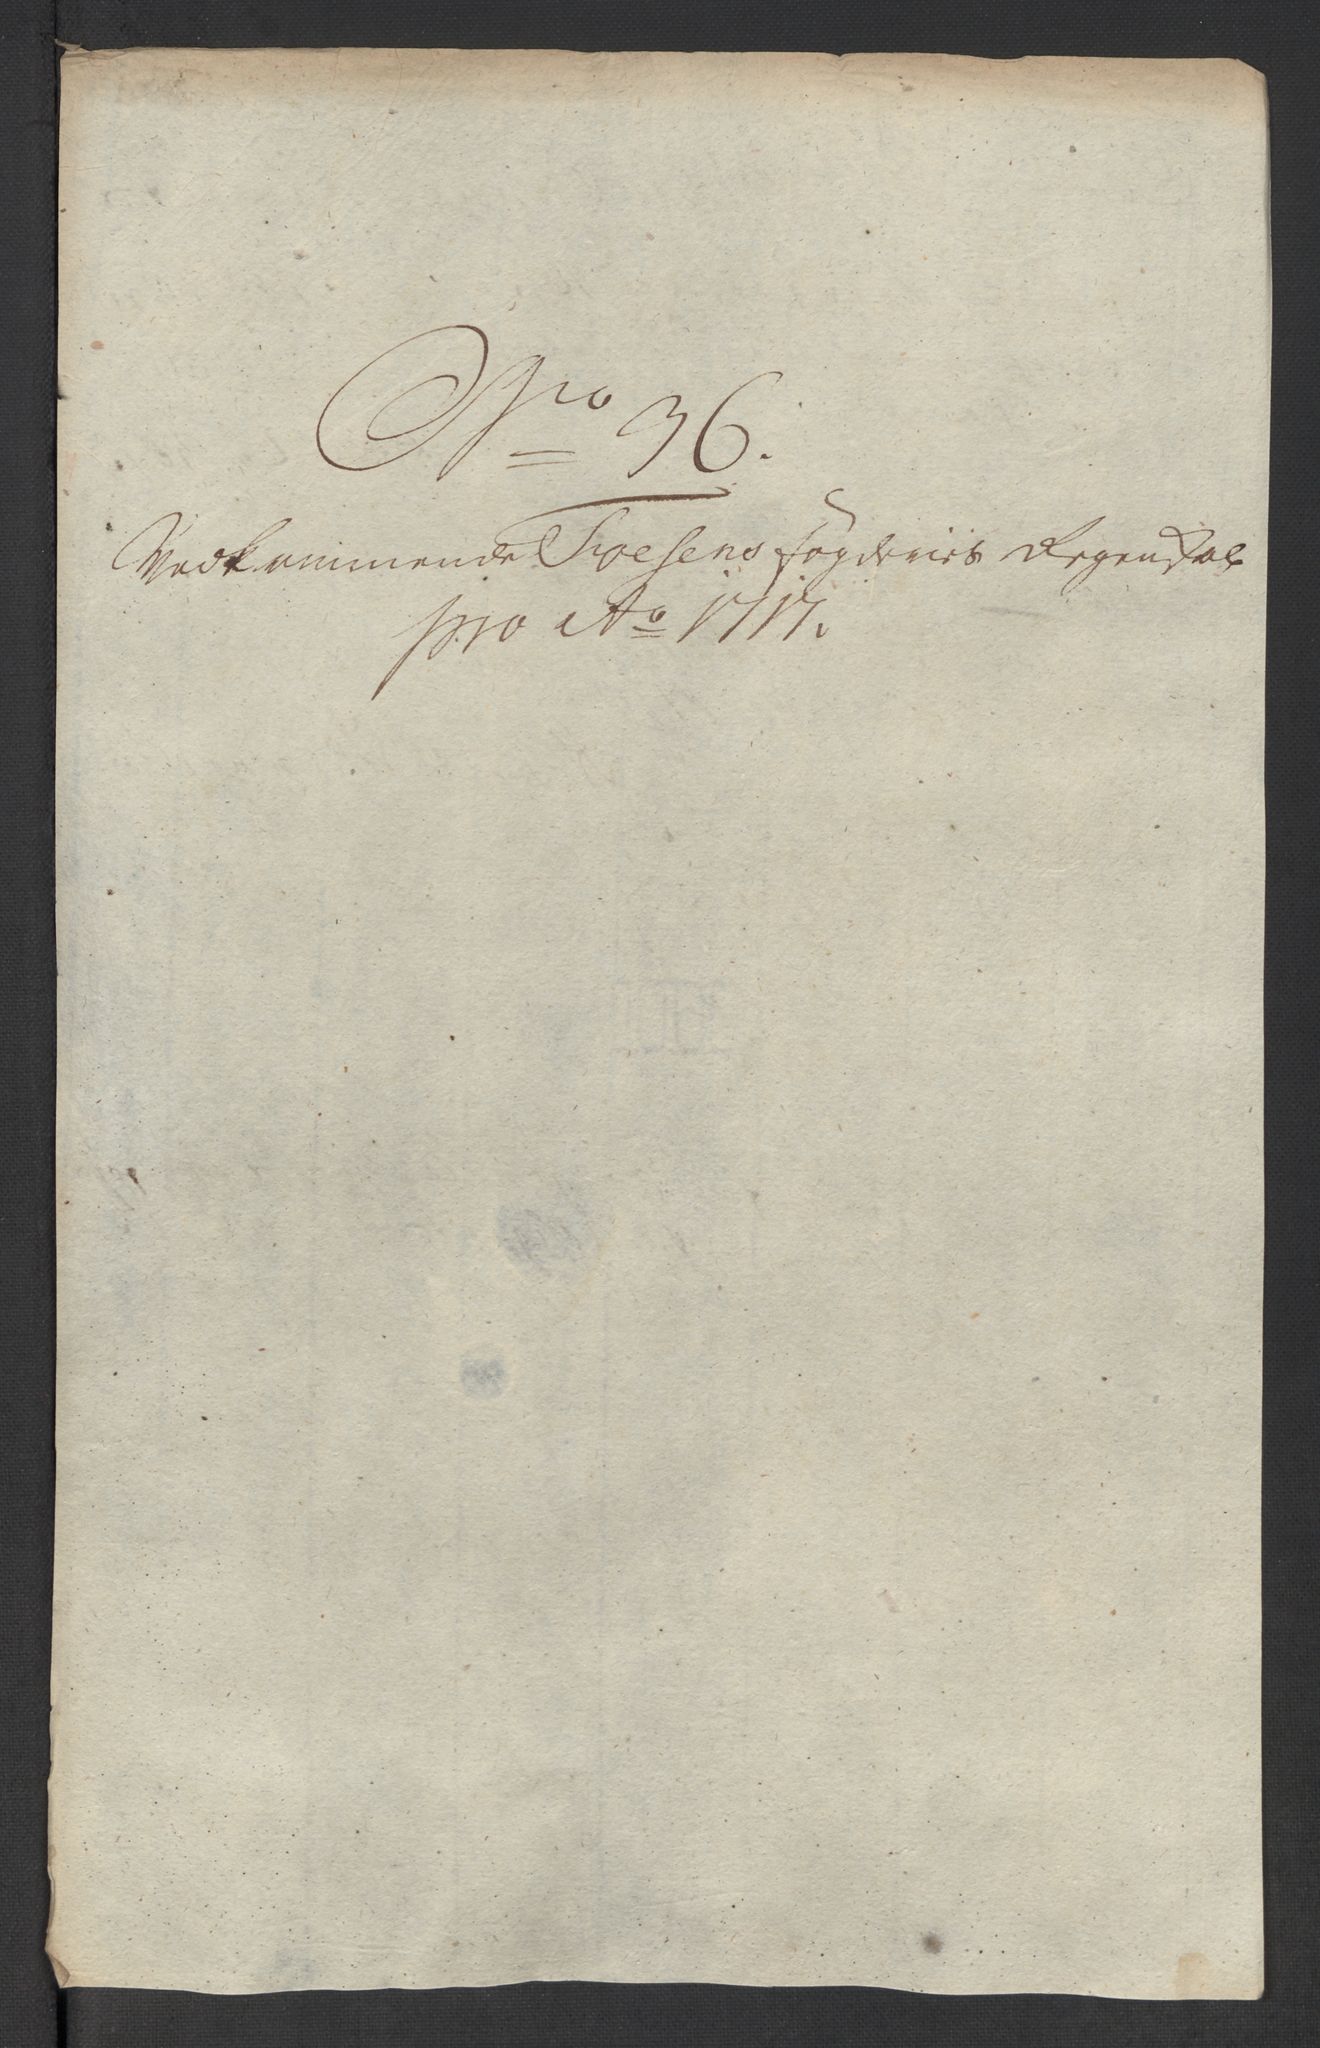 No 36.
Vedkommende Troesens fogderies Regenskab
pro Ao 1717.